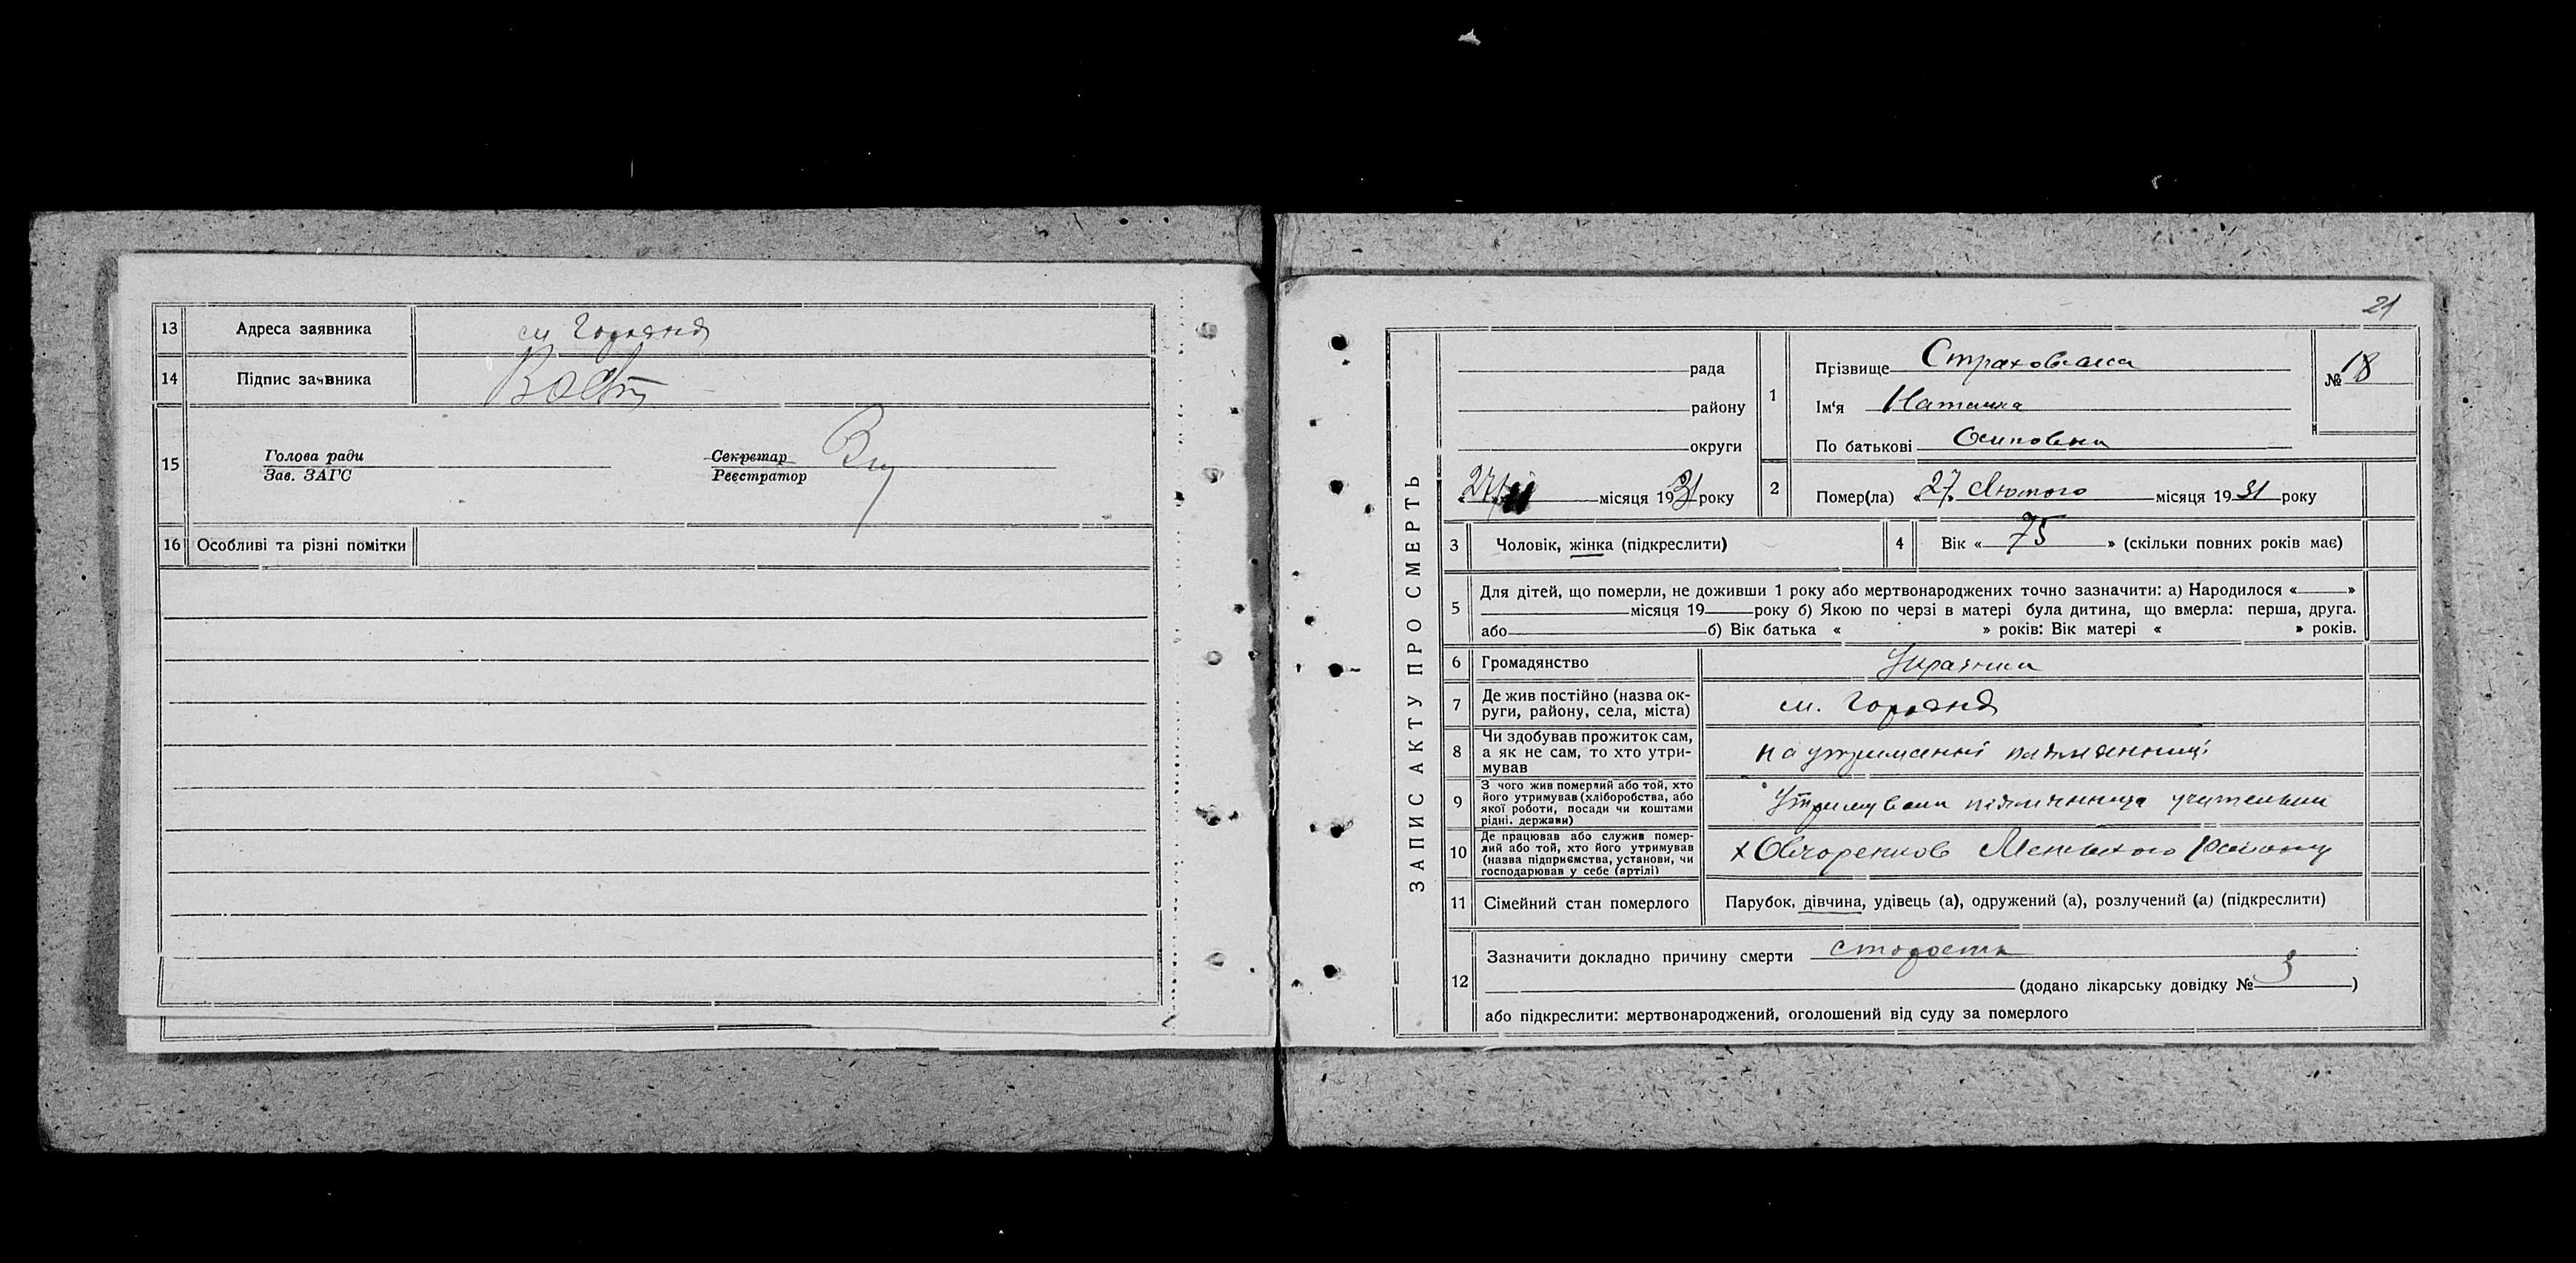 13 Адреса заявника
14 Підпис заявника
15 Голова ради Секретар
Зав. ЗАГС Реєстратор
16 Особливі та різні помітки
21
ЗАПИС АКТУ ПРО СМЕРТЬ
рада
району
округи
27/II місяця 1931 року
1 Прізвище Страховська
Ім'я Наталка
По батькові Осиповна
№ 18
2 Помер(ла) «27» Лютого місяця 1931 року
3 Чоловік, жінка (підкреслити)
4 Вік « 75 » (скільки повних років має)
5 Для дітей, що померли, не доживши 1 року або мертвонароджених точно зазначити: а) Народилося « »
місяця 19 року б) Якою по черзі в матері була дитина, що вмерла: перша, друга.
або б) Вік батька « » років: Вік матері « » років.
6 Громадянство Українка
7 Де жив постійно (назва ок-
руги, району, села, міста) м.
8 Чи здобував прожиток сам,
а як не сам, то хто утри-
мував
на утриманні племянниці
9 З чого жив померлий або той, хто
його утримував (хліборобства, або
якої роботи, посади чи коштами
рідні, держави)
Утримувала племянниця учителька
10 Де працював або служив помер-
лий або той, хто його утримував
(назва підприємства, установи, чи
господарював у себе (артілі)
Менського району
11 Сімейний стан померлого Парубок, дівчина, удівець (а), одружений (а), розлучений (а) (підкреслити)
12 Зазначити докладно причину смерти старость
(додано лікарську довідку № 3 )
або підкреслити: мертвонароджений, оголошений від суду за померлого